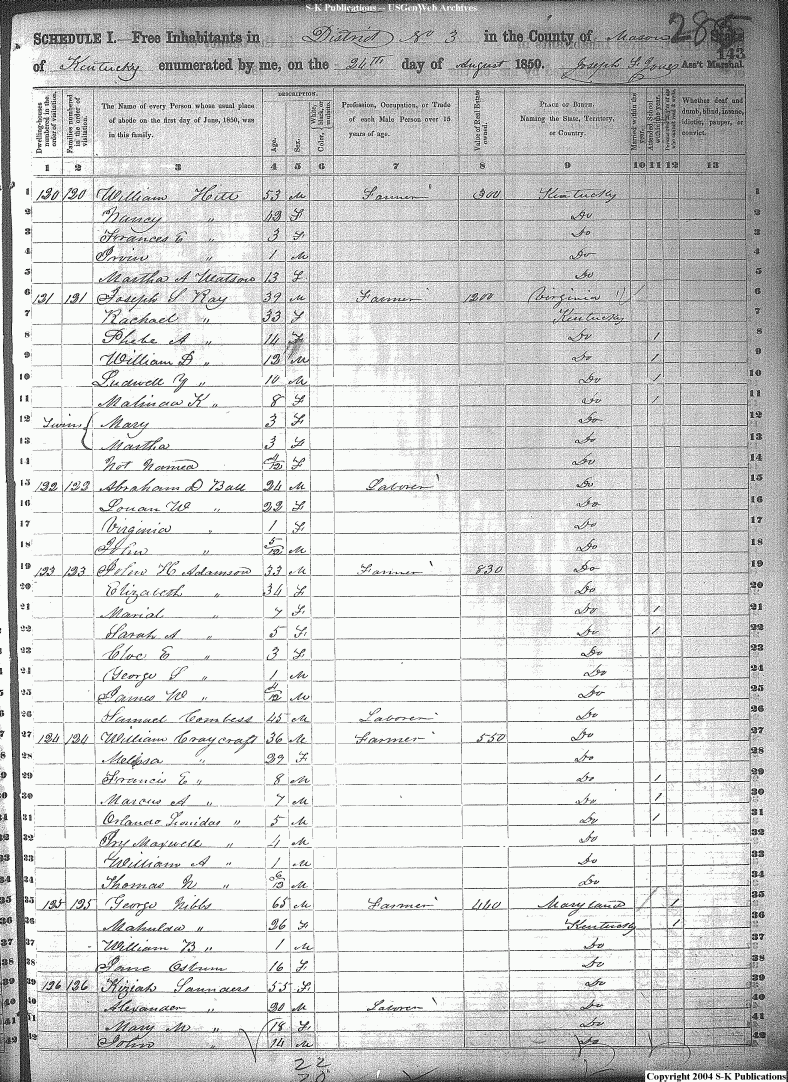 S-K Publications -- USGenWeb Archives
285
SCHEDULE I.- Free Inhabitants in District No 3 in the County of Mason State
143
of Kentucky enumerated by me, on the 24TH day of August 1850. Joseph F. Jones Ass't Marshal.
Dwelling-houses numbered in the order of visitation.
Families numbered in the order of visitation.
The Name of every Person whose usual place of abode on the first day of June, 1850, was in this family.
DESCRIPTION.
Age.
Sex.
Color, White, black, or mulatto.
Profession, Occupation, or Trade of each Male Person over 15 years of age.
Value of Real Estate owned.
PLACE OF BIRTH. Naming the State, Territory, or Country.
Married within the year.
Attended School within the year.
Whether deaf and dumb, blind, insane, idiotic, pauper, or convict.
1 2 3 4 5 6 7 8 9 10 11 12 13
1 120 120 William Hitt 53 M Farmer 300 Kentucky 1
2 Nancy " 43 F Do 2
3 Frances E " 3 F Do 3
4 Irvin " 1 M Do 4
5 Martha A Watson 13 F Do 5
6 121 121 Joseph S Ray 39 M Farmer 1200 Virginia 6
7 Rachael " 33 F Kentucky 7
8 Phebe A " 14 F Do 1 8
9 William D " 12 M Do 1 9
10 Ludwell Y " 10 M Do 1 10
11 Malinda K " 8 F Do 1 11
12 Twins Mary 3 F Do 12
13 Martha 3 F Do 13
14 Not Named 4/12 F Do 14
15 122 122 Abraham D Ball 24 M Laborer Do 15
16 Louan W " 22 F Do 16
17 Virginia " 1 F Do 17
18 John " 5/12 M Do 18
19 123 123 John H Adamson 33 M Farmer 830 Do 19
20 Elizabeth " 34 F Do 20
21 Mariah " 7 F Do 1 21
22 Sarah A " 5 F Do 1 22
23 Cloe E " 3 F Do 23
24 George S " 1 M Do 24
25 James W " 4/12 M Do 25
26 Samuel Combess 45 M Laborer Do 26
27 124 124 William Craycraft 36 M Farmer 550 Do 27
28 Melissa " 29 F Do 28
29 Francis E " 8 M Do 1 29
30 Marcus A " 7 M Do 1 30
31 Orlando Leonidas " 5 M Do 1 31
32 Maxwell " 4 M Do 32
33 William A " 1 M Do 33
34 Thomas N " 6/12 M Do 34
35 125 125 George Nibbs 65 M Farmer 440 Maryland 1 35
36 Mahulda " 26 F Kentucky 1 36
37 William B " 1 M Do 37
38 Jane Osburn 16 F Do 38
39 126 126 Kiziah Saunders 55 F Do 39
40 Alexander " 20 M Laborer Do 40
41 Mary M " 18 F Do 41
42 John " 14 M Do 42
22
20
Copyright 2004 S-K Publications